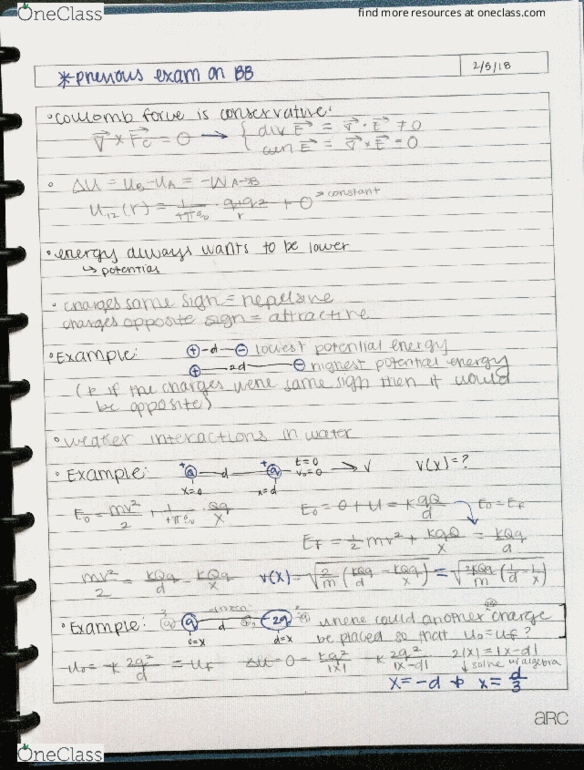 OneClass
find more resources at oneclass.com
*previous exam on BB
2/5/18
• Coulomb force is conservative:
∇ × Fc = 0 → { div E = ∇ · E ≠ 0
curl E = ∇ × E = 0
• ΔU = UB - UA = -WA→B
U12(r) = 1/4πε0 · q1q2/r + 0 → constant
• energy always wants to be lower
↳ potential
• charges same sign = repulsive
charges opposite sign = attractive
• Example: ⊕-d-⊖ lowest potential energy
⊕—2d—⊖ highest potential energy
(* if the charges were same sign then it would
be opposite)
• weaker interactions in water
• Example: +Q — d — +q t=0 v0=0 → v v(x)=?
x=0 x=d
E0 = mv²/2 + 1/4πε0 Qq/x E0 = 0 + U = KqQ/d E0 = EF
EF = 1/2 mv² + KqQ/x = KQq/d
mv²/2 = KQq/d - KQq/x v(x) = √(2/m (KQq/d - KQq/x)) = √(2KQq/m (1/d - 1/x))
• Example: q d -2q where could another charge
0=x d=x be placed so that U0=UF?
U0 = -K 2q²/d = UF ΔU = 0 = Kq²/|x| - K 2q²/|x-d| 2|x| = |x-d|
↓ solve w/ algebra
x = -d & x = d/3
ARC
OneClass